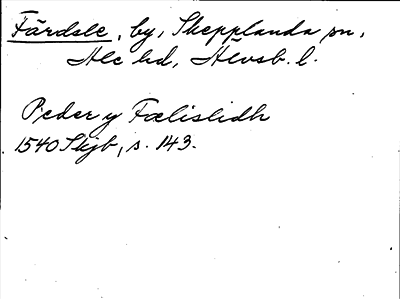 Färdsle, by, Skepplanda sn,
Ale hd, Älvsb. l.
Peder y Fælislidh
1540 Skjb, s. 143.